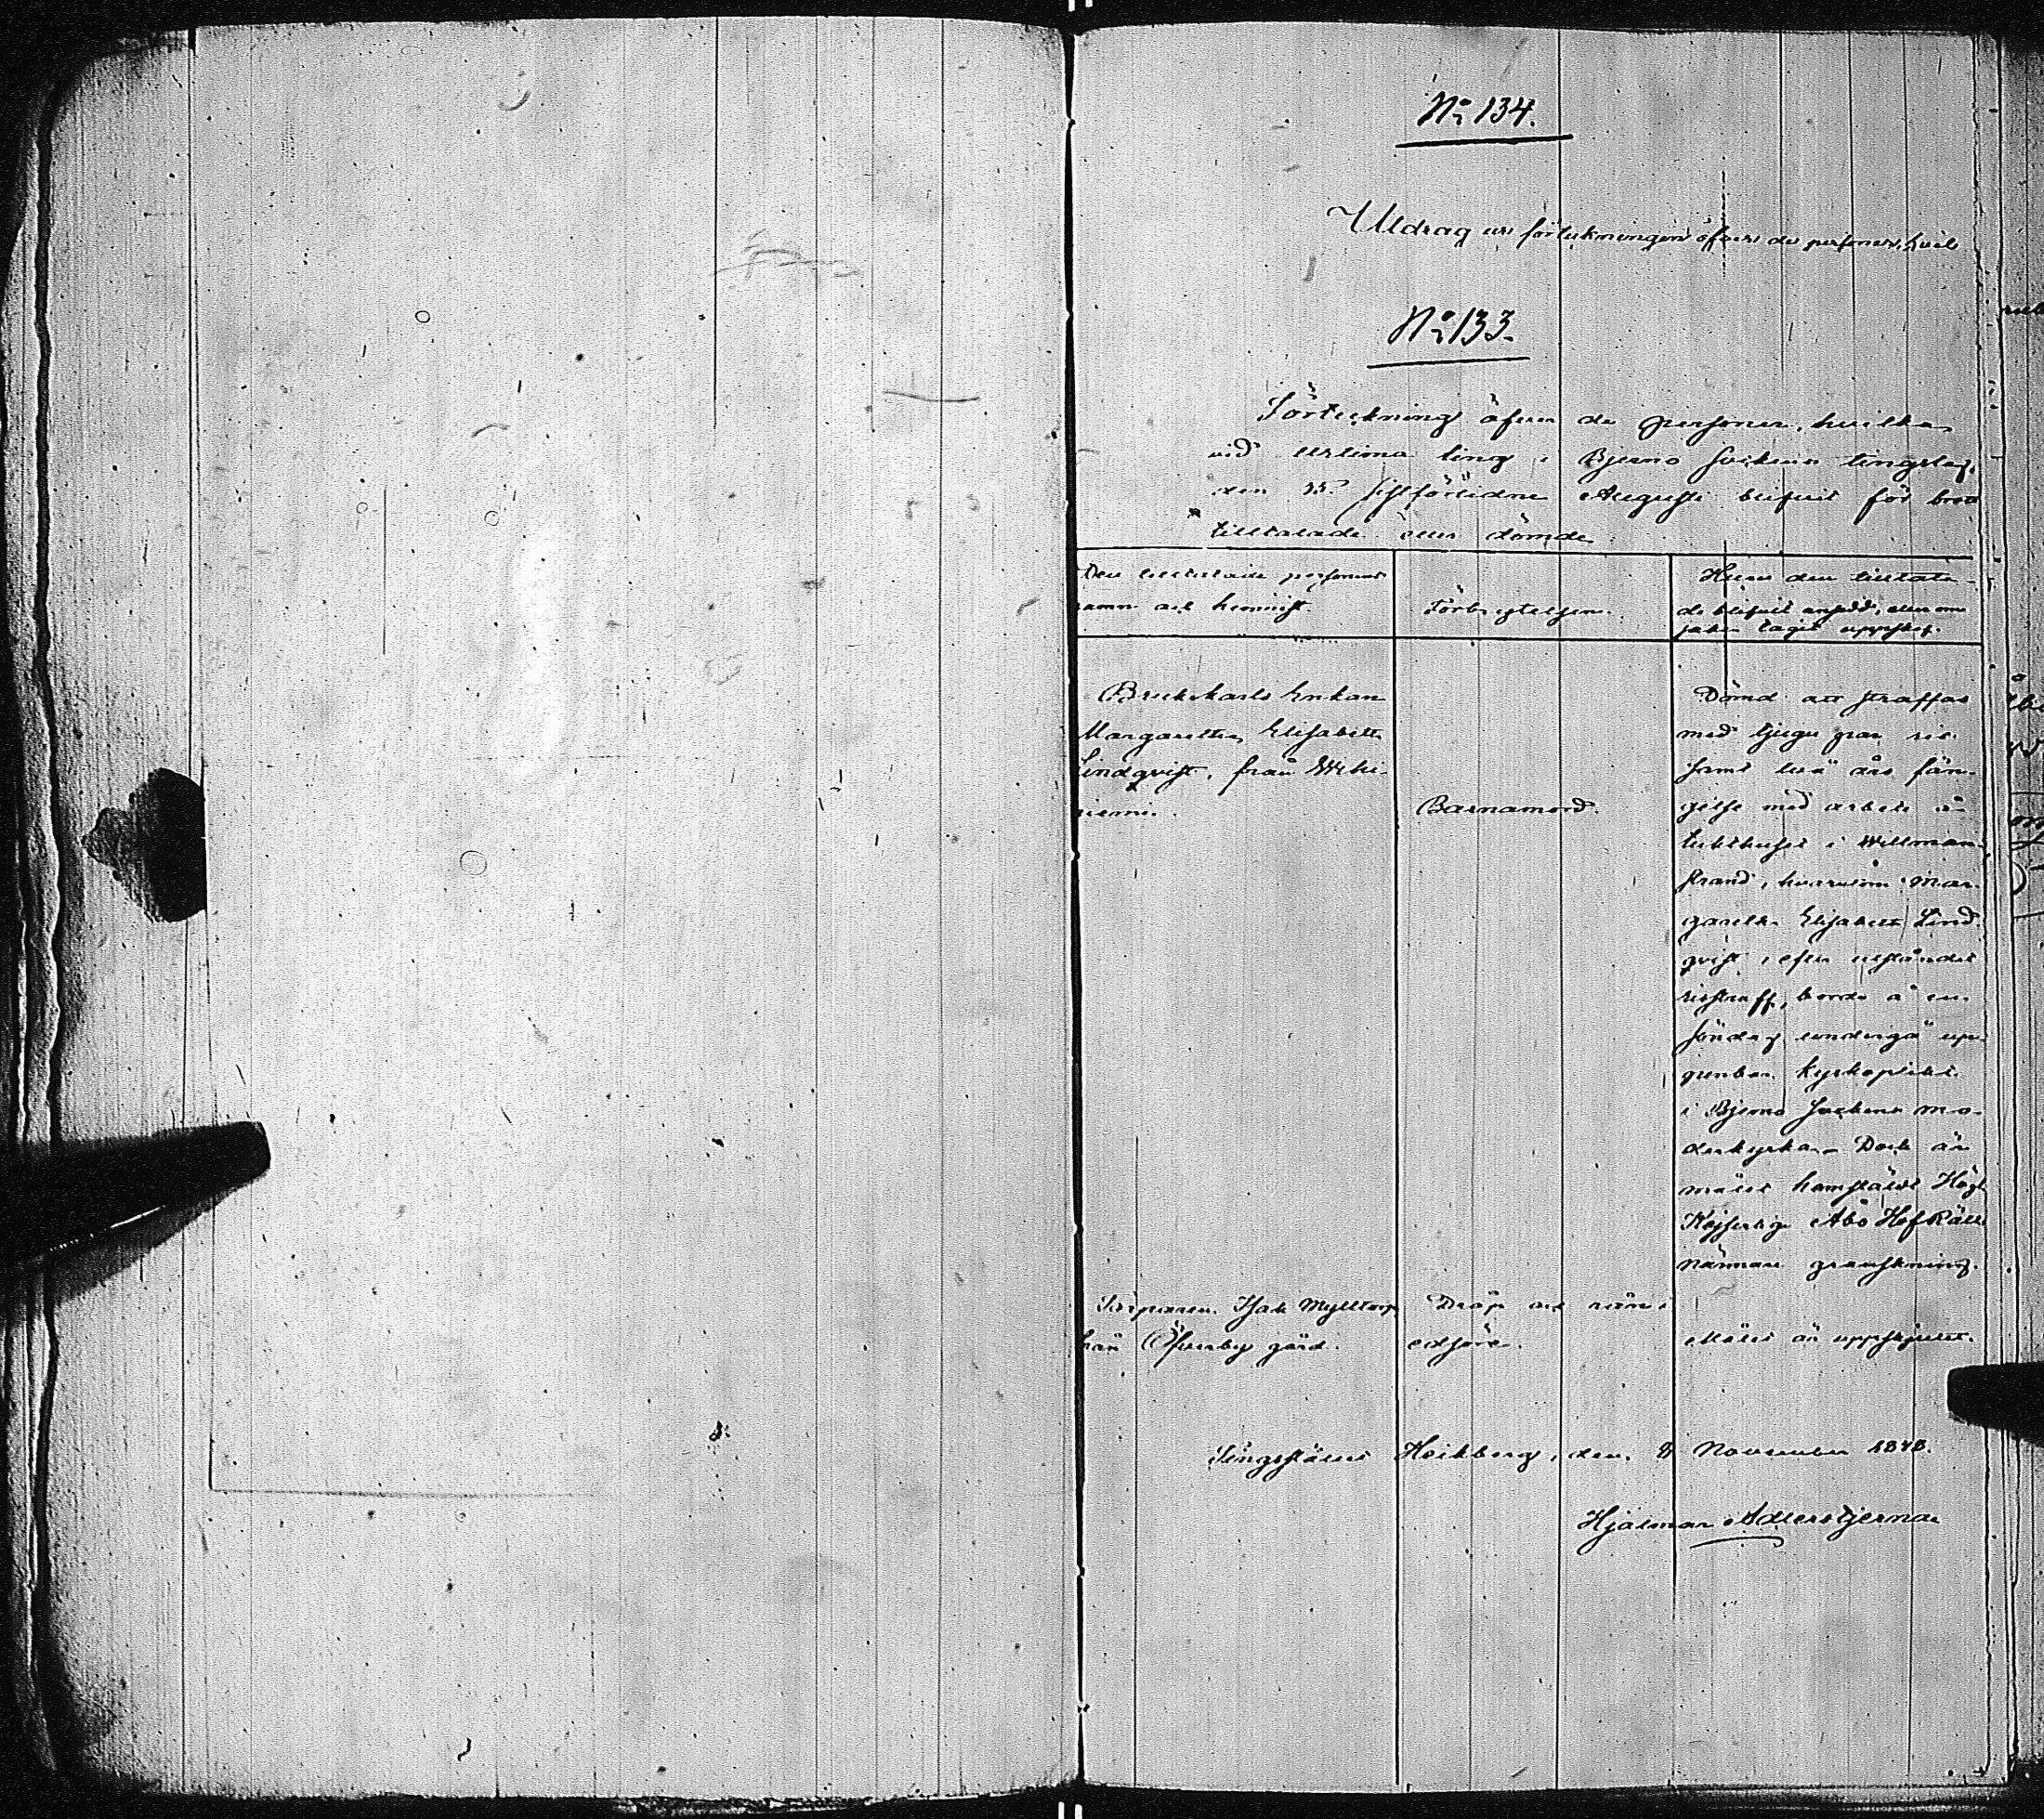 No 134.
Utdrag ur förtekningen öfver de personer, hvil
No 133.
Förtekning öfver de personer, hvilka
vid urtima ting i Bjerno Sockens tingslag,
den sistförlidne Augusti blifvit för brott
tilltalade eller dömde
Den tilltalade personens
namn och hemvist
Förbrytelsen.
Huru den tilltala-
de blifvit ansedd, eller om
saken tagit uppskof.
Brukskarls Enkan
Margaretha Elisabeth
Lindqvist, från
niemi.
Barnamord.
Dömd att straffas
med tjugu par ris
samt två års fän-
gelse med arbete å
tukthuset i Willman-
strand, hvarutom Mar-
garetha Elisabeth Lind-
qvist, efter utståndet
risstraff, borde å en
söndag undergå up-
penbar kyrkoplikt
i Bjerno Sockens mo-
derkyrka. Dock är
målet hemstäldt Högl.
Kejserlige Åbo HofRätts
närmare granskning.
Torparen Isak Mylltorp
från Öfverby gård.
Dråp och rån i
edsöre.
Målet är uppskjutet.
Tingsstället Heikberg, den 8 November 1848.
Hjalmar Adlerstjerna